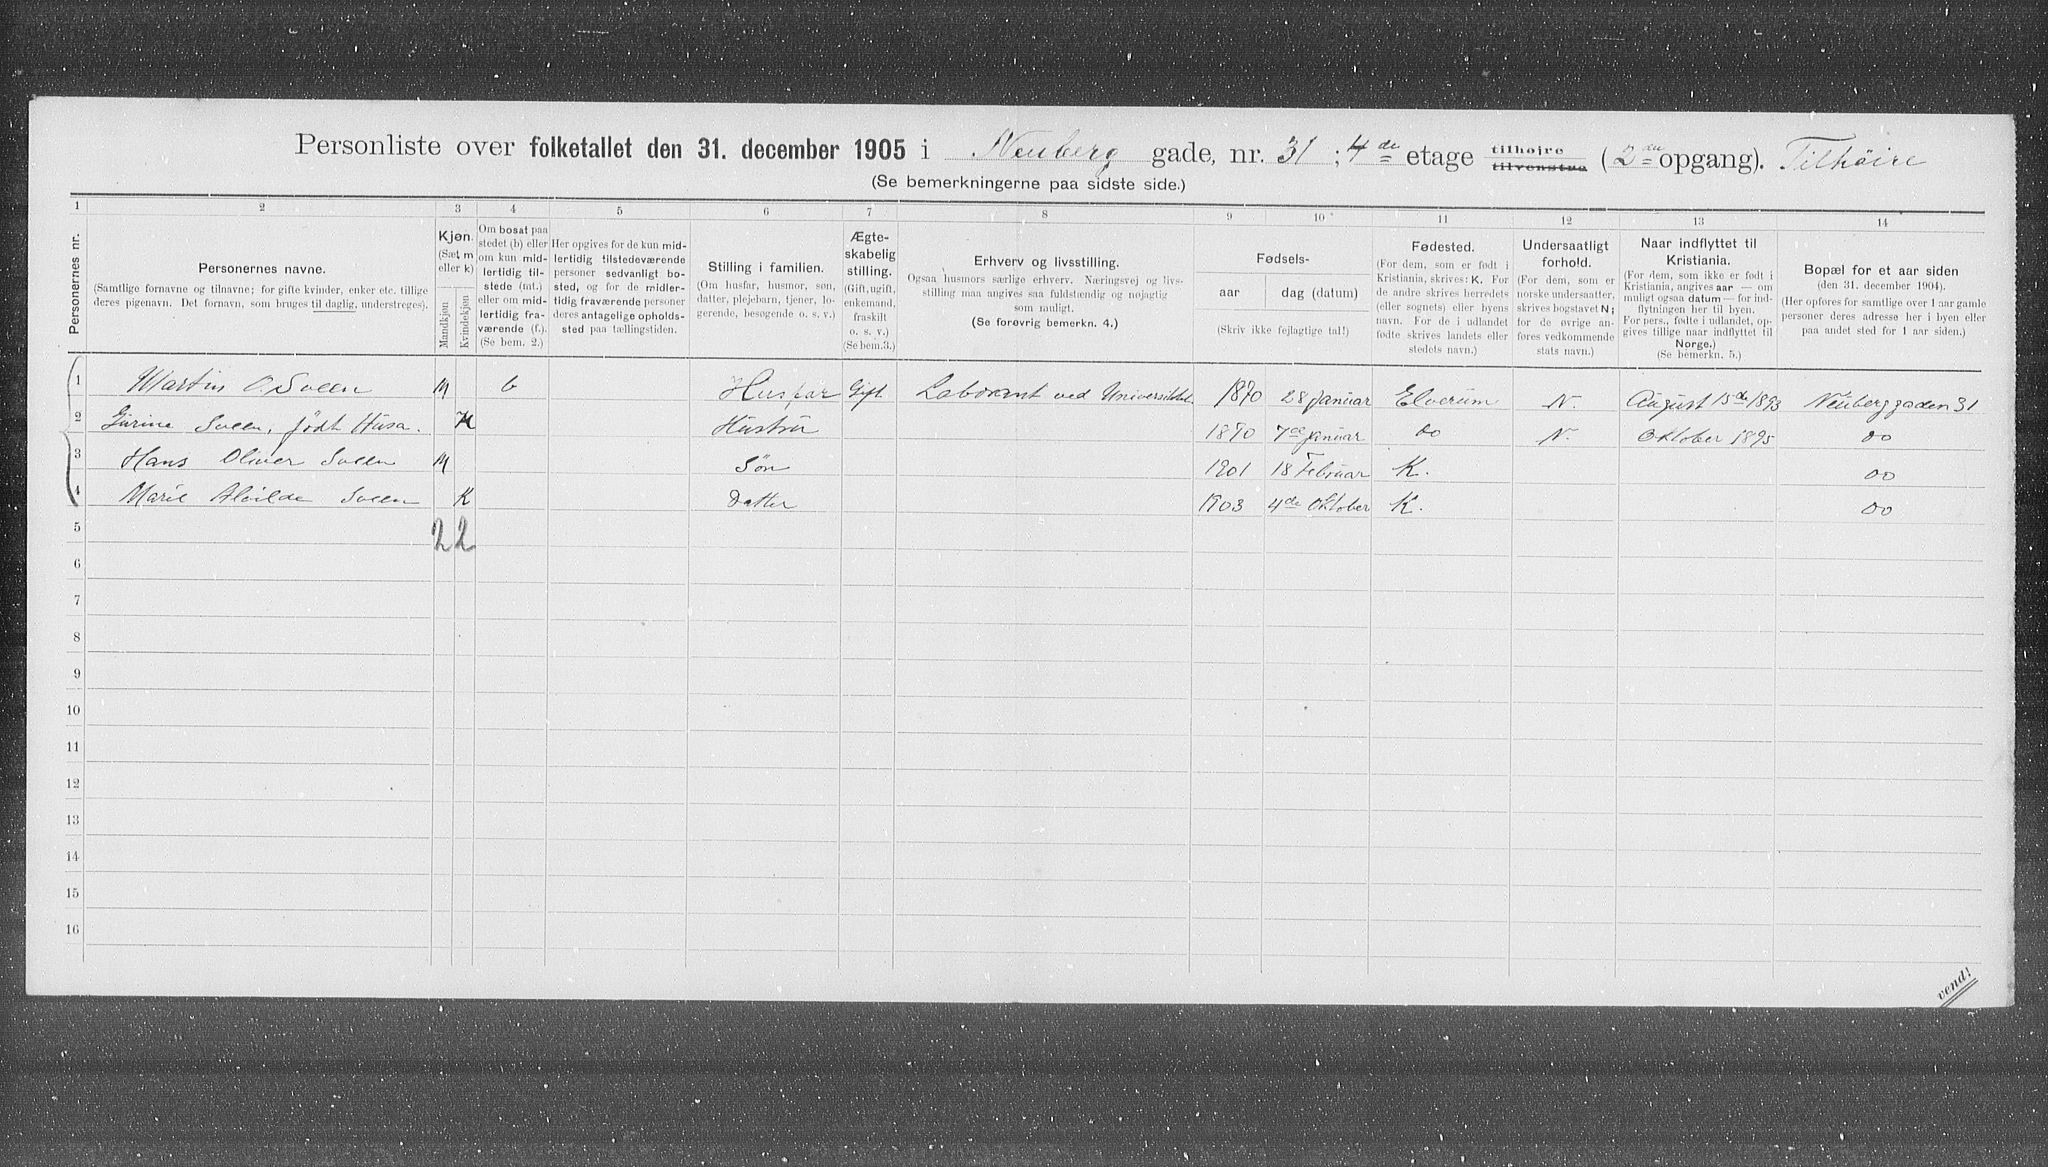 Personliste over folketallet den 31. december 1905 i Neuberg gade, nr. 31 ; 4de etage tilhøire tilvenstre (2den opgang). Tilhøire
(Se bemerkningerne paa sidste side.)
1 2 3 4 5 6 7 8 9 10 11 12 13 14
Personernes nr.
Personernes navne.
(Samtlige fornavne og tilnavne; for gifte kvinder, enker etc. tillige
deres pigenavn. Det fornavn, som bruges til daglig, understreges).
Kjøn.
(Sæt m
eller k)
Mandkjøn
Kvindekjøn
Om bosat paa
stedet (b) eller
om kun mid-
lertidig til-
stede (mt.)
eller om mid-
lertidig fra-
værende (f.).
(Se bem. 2.)
Her opgives for de kun mid-
lertidig tilstedeværende
personer sedvanligt bo-
sted, og for de midler-
tidig fraværende personer
deres antagelige opholds-
sted paa tællingstiden.
Stilling i familien.
(Om husfar, husmor, søn,
datter, plejebarn, tjener, lo-
gerende, besøgende o. s. v.)
Ægte-
skabelig
stilling.
(Gift, ugift,
enkemand,
fraskilt
o. s. v.)
(Se bem.3.)
Erhverv og livsstilling.
Ogsaa husmors særlige erhverv. Næringsvej og livs-
stilling maa angives saa fuldstændig og nøjagtig
som muligt.
(Se forøvrig bemerkn. 4.)
Fødsels-
aar dag (datum)
(Skriv ikke fejlagtige tal!)
Fødested.
(For dem, som er født i
Kristiania, skrives: K. For
de andre skrives herredets
(eller sognets) eller byens
navn. For de i udlandet
fødte skrives landets eller
stedets navn.)
Undersaatligt
forhold.
(For dem, som er
norske undersaatter,
skrives bogstavet N;
for de øvrige an-
føres vedkommende
stats navn.)
Naar indflyttet til
Kristiania.
(For dem, som ikke er født i
Kristiania, angives aar — om
muligt ogsaa datum — for ind-
flytningen her til byen.
For pers., fødte i udlandet, op-
gives tillige naar indflyttet til
Norge.)
(Se bemerkn. 5.)
Bopæl for et aar siden
(den 31. december 1904).
(Her opføres for samtlige over 1 aar gamle
personer deres adresse her i byen eller
paa andet sted for 1 aar siden.)
1 Martin O. Sveen M b Husfar Gift Laborant ved Universitetet 1870 28 Januar Elverum N. August 15de 1893 Neuberggaden 31
2 Gurine Sveen, født Husa. K Hustru 1870 7de Januar do N. Oktober 1895 do
3 Hans Oliver Sveen M Søn 1901 18 Februar K. do
4 Marie Alvilde Sveen K Datter 1903 4de Oktober K. do
5 2 2
6
7
8
9
10
11
12
13
14
15
16
vend!